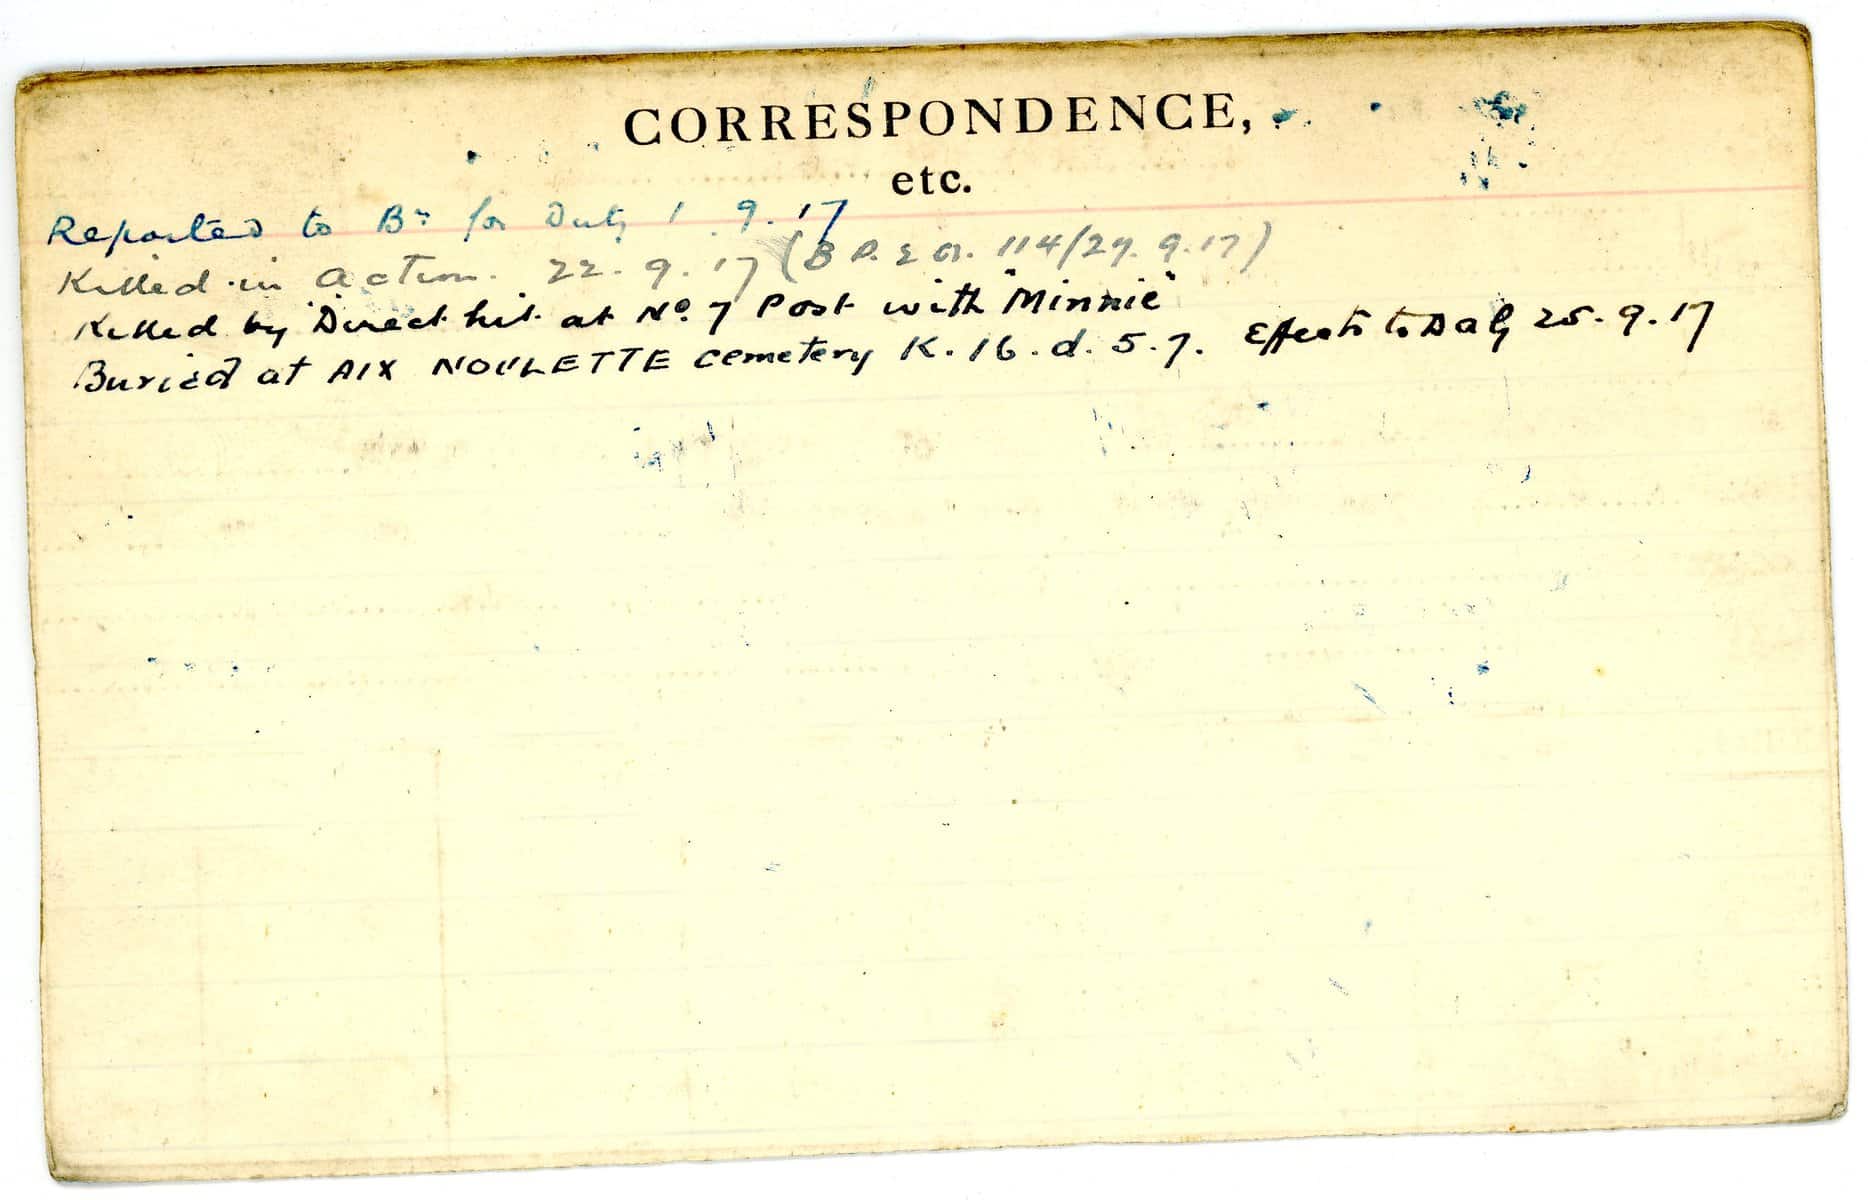 CORRESPONDENCE,
etc.
Reported to Bn for Duty 1.9.17
Killed in action. 22.9.17 (B P. 2 Or. 114/27.9.17)
Killed by "Direct hit at No. 7 Post with "Minnie"
Buried at AIX NOULETTE cemetery K.16.d.5.7. Effects to DAG 25.9.17